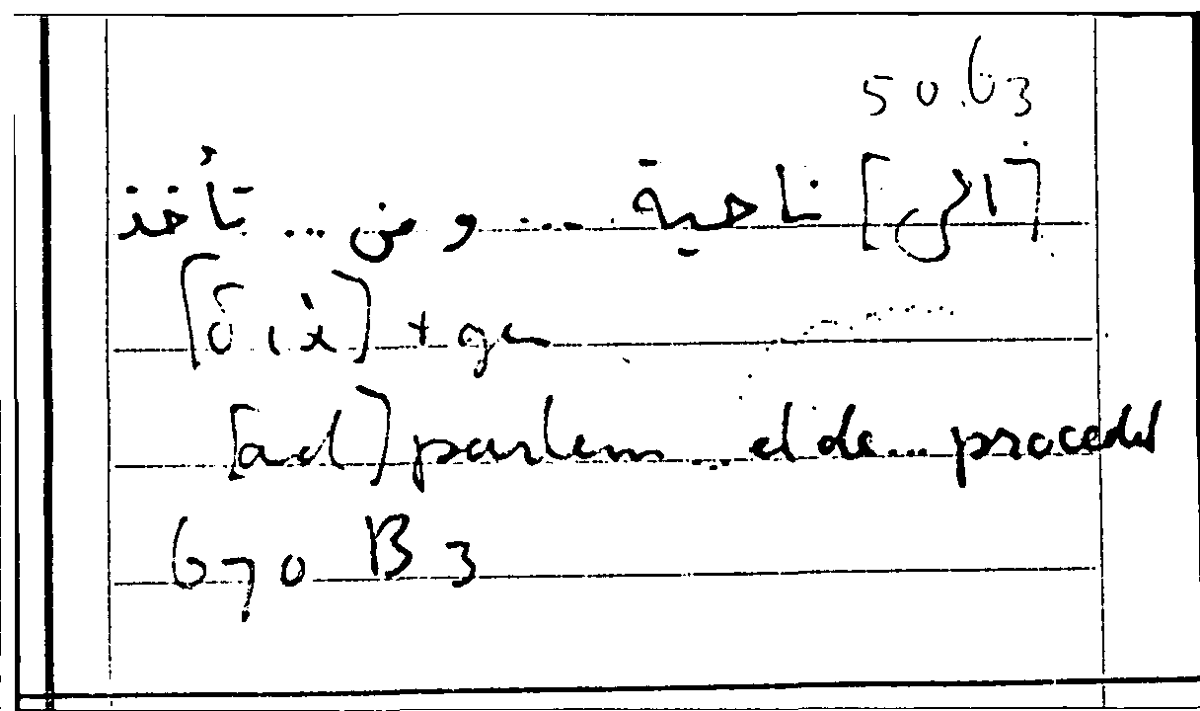 50.63
[الى] ناحية ... و من ... تأخذ
[διά] + gen
[ad] partem ... et de ... procedit
670 B 3